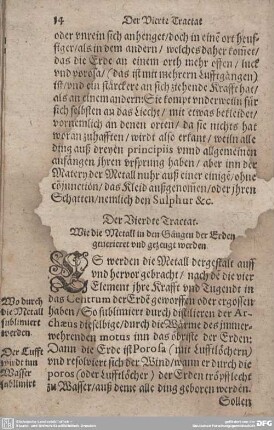 14 Der Vierte Tractat
oder vnrein sich anhenget/doch in eine ort heuf-
figer/als in dem andern/ welches daher komet/
das die Erde an einem orth mehr offen/ luck
vnd porosa/ (das ist mit mehrern Lufftgängen)
ist/vnd ein stärckere an sich ziehende Krafft hat/
als an einem andern: Sie kompt vnderweiln für
sich selbsten an das Liecht/ mit etwas bekleidet/
vornemlich an denen orten/ da sie nichts hat
woran zuhafften/ wirdt also erkant/ weiln alle
ding auß dreyen principiis vnnd allgemeinen
anfängen jhren vrsprung haben/ aber inn der
Matery der Metall nuhr auß einer einige/ ohne
conjunction/ das Kleid außgenomen/oder jhren
Schatten/nemlich den Sulphur &c.
Der Vierdte Tractat.
Wie die Metall in den Gängen der Erden
generieret vnd gezeugt werden
ES werden die Metall dergestalt auff
vnd hervor gebracht/ nach de die vier
Element jhre Krafft vnd Tugendt in
das Centrum der Erde geworffen oder ergossen
haben/ So sublimiert durch distilleren der Ar-
chæus dieselbige/durch die Wärme des immer-
wehrenden motus inn das obriste der Erden:
Dann die Erde ist Porosa (mit Lufftlöchern)
vnd resolviert sich der Wind/wann er durch die
poros (oder Lufftlöcher) der Erden tröpfflecht
zu Wasser/auß deme alle ding geboren werden.
Sollen
Wo durch
die Metall
sublimiert
werden
Der Lufft
Wasser